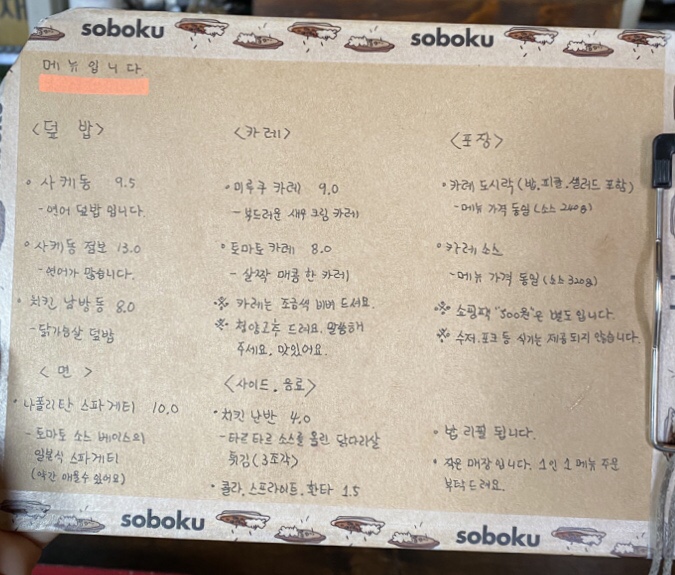 soboku
soboku
메뉴입니다
<덮 밥>
• 사케동 9.5
- 연어 덮밥 입니다.
• 사케동 점보 13.0
- 연어가 많습니다.
• 치킨 남방동 8.0
- 닭가슴살 덮밥
<면>
• 나폴리탄 스파게티 10.0
- 토마토 소스 베이스의
일본식 스파게티
(약간 매울수 있어요)
<카레>
• 미루쿠 카레 9.0
- 부드러운 새우 크림 카레
• 토마토 카레 8.0
- 살짝 매콤한 카레
※ 카레는 조금씩 비벼 드세요.
※ 청양고추 드려요. 말씀해
주세요. 맛있어요.
<사이드. 음료>
• 치킨 난반 4.0
- 타르타르 소스를 올린 닭다리살
튀김(3조각)
• 콜라. 스프라이트. 환타 1.5
<포장>
• 카레 도시락(밥.피클.샐러드 포함)
- 메뉴 가격 동일 (소스 240g)
• 카레 소스
- 메뉴 가격 동일 (소스 320g)
※ 쇼핑팩 "500원"은 별도 입니다.
※ 수저.포크 등 식기는 제공되지 않습니다.
• 밥 리필 됩니다.
• 작은 매장 입니다. 1인 1메뉴 주문
부탁드려요.
soboku
soboku